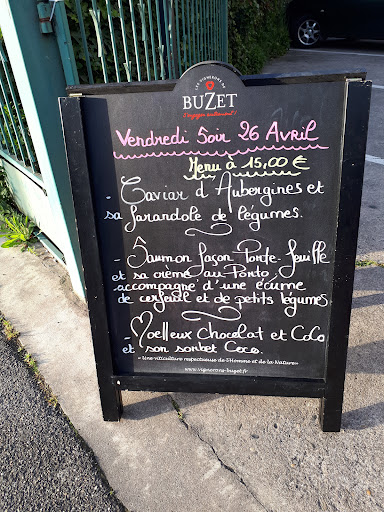 LES VIGNERONS DE
BUZET
Vendredi Soir 26 Avril
Menu à 15,00 €
- Caviar d'Aubergines et
sa farandole de légumes.
- Saumon façon Porte-feuille
et sa crème au Porto,
accompagné d'une écume
de cerfeuil et de petits légumes
- Moelleux Chocolat et CoCo
et son sorbet Coco.
« Une viticulture respectueuse de l'Homme et de la Nature»
www.vignerons-buzet.fr